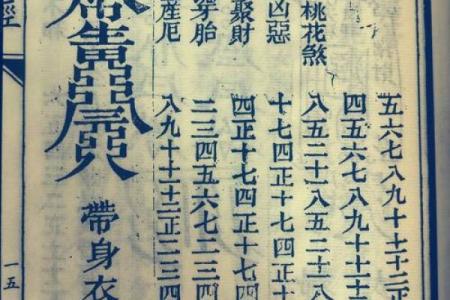 五六七八九十十二正
四五六七八九十十
桃花煞 八五二十八五二十八
凶惡 十七四正十七四正十
聚財 四正十七四正十七四
穿胎 二三四五六七
產厄 八九十十二正二三四
帶身衣
經
一五